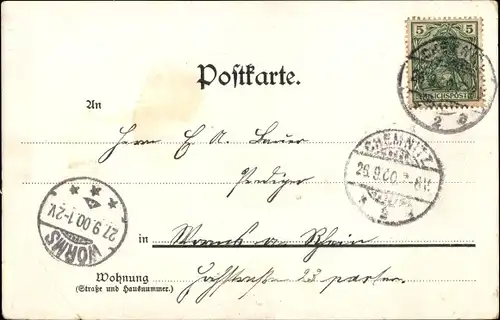 5 5
REICHSPOST
Postkarte.
An
Herrn E. A. Bauer
CHEMNITZ
26.9.00.7-8N.
2
Prediger
27.9.00.1-2V.
WORMS
in Worms a. Rhein
Wohnung
(Straße und Hausnummer.)
23 parterre.